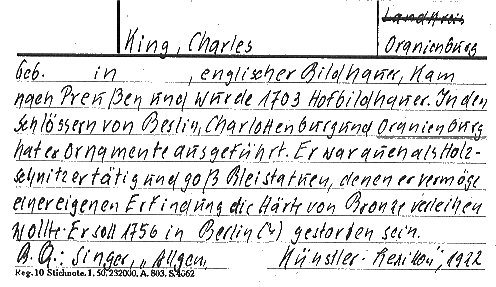 Landkreis
King, Charles
Oranienburg
Geb. in , englischer Bildhauer, kam
nach Preußen und wurde 1703 Hofbildhauer. In den
Schlössern von Berlin, Charlottenburg und Oranienburg
hat er Ornamente ausgeführt. Er war auch als Holz-
schnitzer tätig und goß Bleistatuen, denen er vermöge
einer eigenen Erfindung die Härte von Bronze verleihen
wollte. Er soll 1756 in Berlin (?) gestorben sein.
B. Q.: Singer, „Allgem. Künstler-Lexikon", 1922
Reg. 10 Stichnote. 1. 50, 232000. A. 803. S. 4662